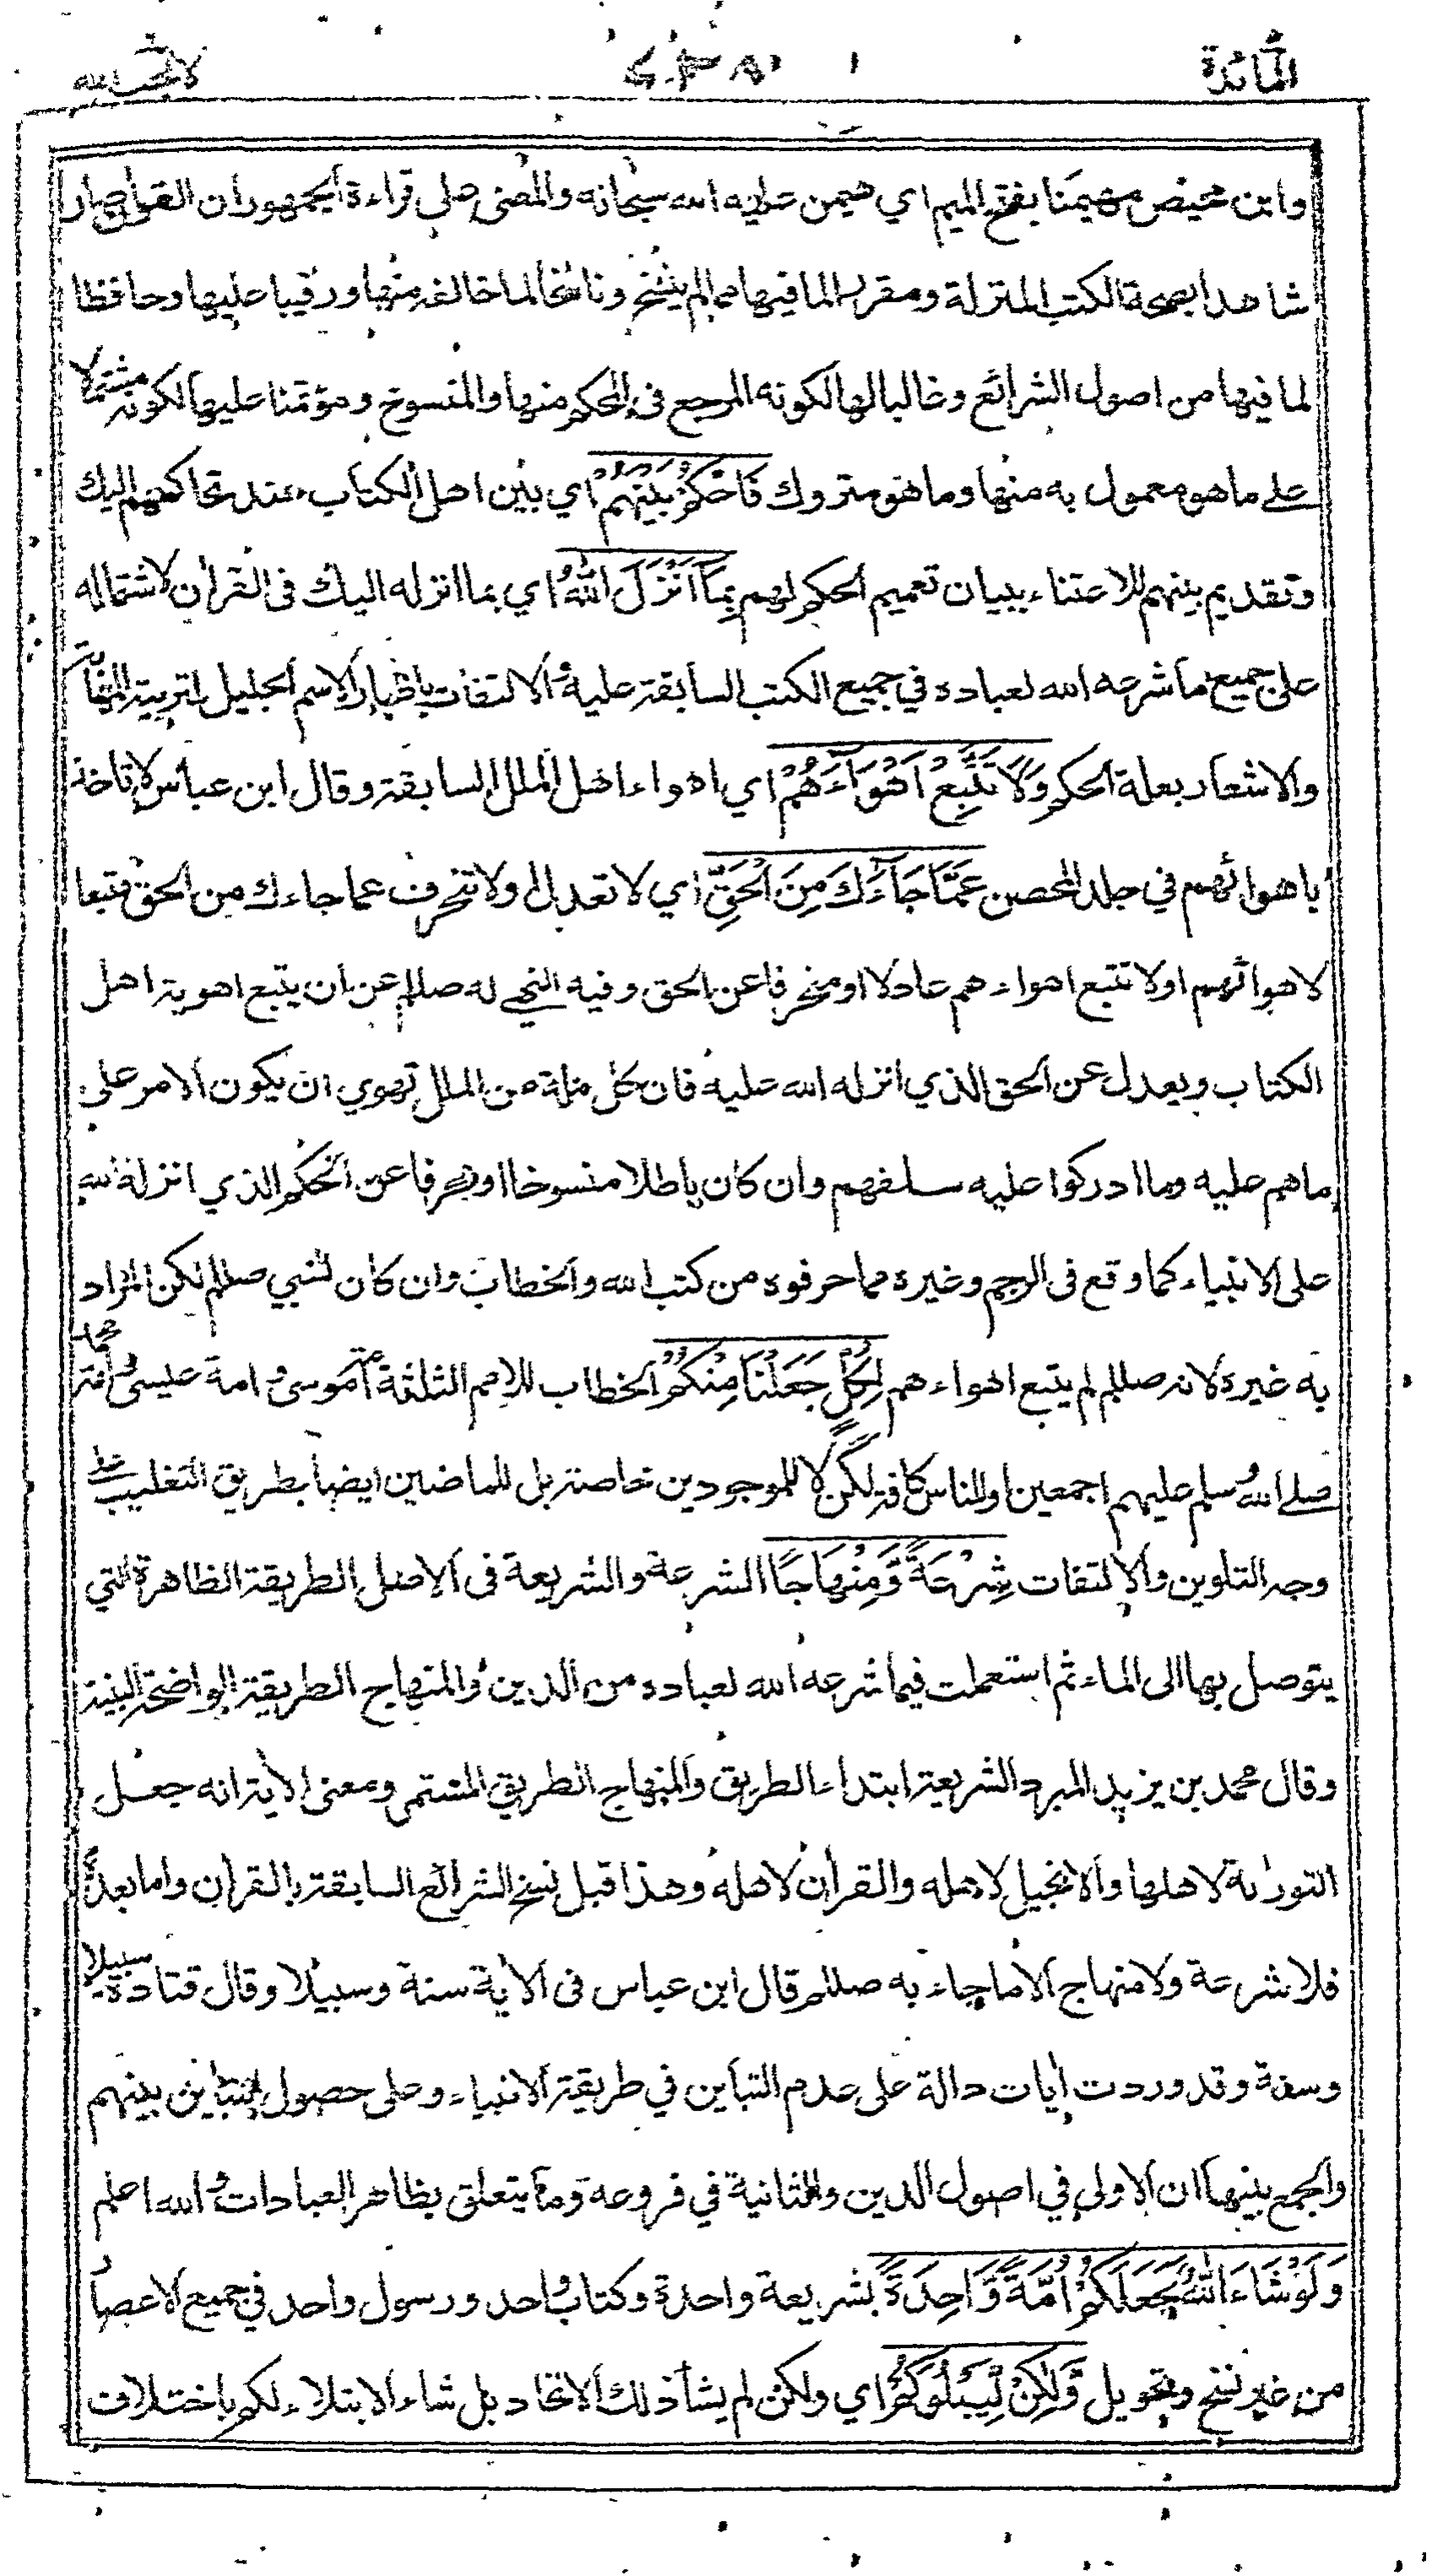 المائدة لا يحب الله
وابن محيصن مهيمَنا بفتح الميم اي هيمن عليه الله سبحانه والمعنى على قراءة الجمهور ان القرآن صار
شاهدا بصحة الكتب المنزلة ومقررا لما فيها مما لم ينسخ وناسخا لما خالفه منها ورقيبا عليها وحافظا
لما فيها من اصول الشرائع وغالبا لها لكونه المرجع فى المحكم منها والمنسوخ ومؤتمنا عليها لكونه مشتملا
على ما هو معمول به منها وما هو متروك فَاحْكُمْ بَيْنَهُمْ اي بين اهل الكتاب عند تحاكمهم اليك
وتقديم بينهم للاعتناء ببيان تعميم الحكم لهم بِمَآ اَنْزَلَ اللّٰهُ اي بما انزله اليك فى القرآن لاشتماله
على جميع ما شرعه الله لعباده في جميع الكتب السابقة عليه والالتفات باظهار الاسم الجليل لتربية المهابة
والاشعار بعلة الحكم وَلَا تَتَّبِعْ اَهْوَآءَهُمْ اي اهواء اهل الملل السابقة وقال ابن عباس لا تاخذ
باهوائهم في جلد المحصن عَمَّا جَآءَكَ مِنَ الْحَقِّ اي لا تعدل ولا تنحرف عما جاءك من الحق متبعا
لاهوائهم او لا تتبع اهواءهم عادلا او منحرفا عن الحق وفيه النهي له صللم عن ان يتبع اهوية اهل
الكتاب ويعدل عن الحق الذي انزله الله عليه فان كل ملة من الملل تهوي ان يكون الامر على
ما هم عليه وما ادركوا عليه سلفهم وان كان باطلا منسوخا او محرفا عن الحكم الذي انزله الله
على الانبياء كما وقع فى الرجم وغيره مما حرفوه من كتب الله والخطاب وان كان للنبي صللم لكن المراد
به غيره لانه صللم لم يتبع اهواءهم لِكُلٍّ جَعَلْنَا مِنْكُمْ الخطاب للامم الثلثة امة موسى وامة عيسى وامة محمد
صلى الله وسلم عليهم اجمعين او للناس كافة لكن لا للموجودين خاصة بل للماضين ايضا بطريق التغليب على
وجه التلوين والالتفات شِرْعَةً وَّمِنْهَاجًا الشرعة والشريعة فى الاصل الطريقة الظاهرة التي
يتوصل بها الى الماء ثم استعملت فيما شرعه الله لعباده من الدين والمنهاج الطريقة الواضحة البينة
وقال محمد بن يزيد المبرد الشريعة ابتداء الطريق والمنهاج الطريق المستمر ومعنى الاية انه جعل
التورٰىة لاهلها والانجيل لاهله والقرآن لاهله وهذا قبل نسخ الشرائع السابقة بالقرآن واما بعده
فلا شرعة ولا منهاج الا ما جاء به صللم قال ابن عباس فى الاية سنة وسبيلا وقال قتادة سبيلا
وسنة وقد وردت اٰيات دالة على عدم التباين في طريقة الانبياء وعلى حصول التباين بينهم
والجمع بينها ان الاولى في اصول الدين والثانية في فروعه وما يتعلق بظاهر العبادات والله اعلم
وَلَوْ شَآءَ اللّٰهُ لَجَعَلَكُمْ اُمَّةً وَّاحِدَةً بشريعة واحدة وكتاب واحد ورسول واحد في جميع الاعصار
من غير نسخ وتحويل وَّلٰكِنْ لِّيَبْلُوَكُمْ اي ولكن لم يشأ ذلك الاتحاد بل شاء الابتلاء لكم باختلاف